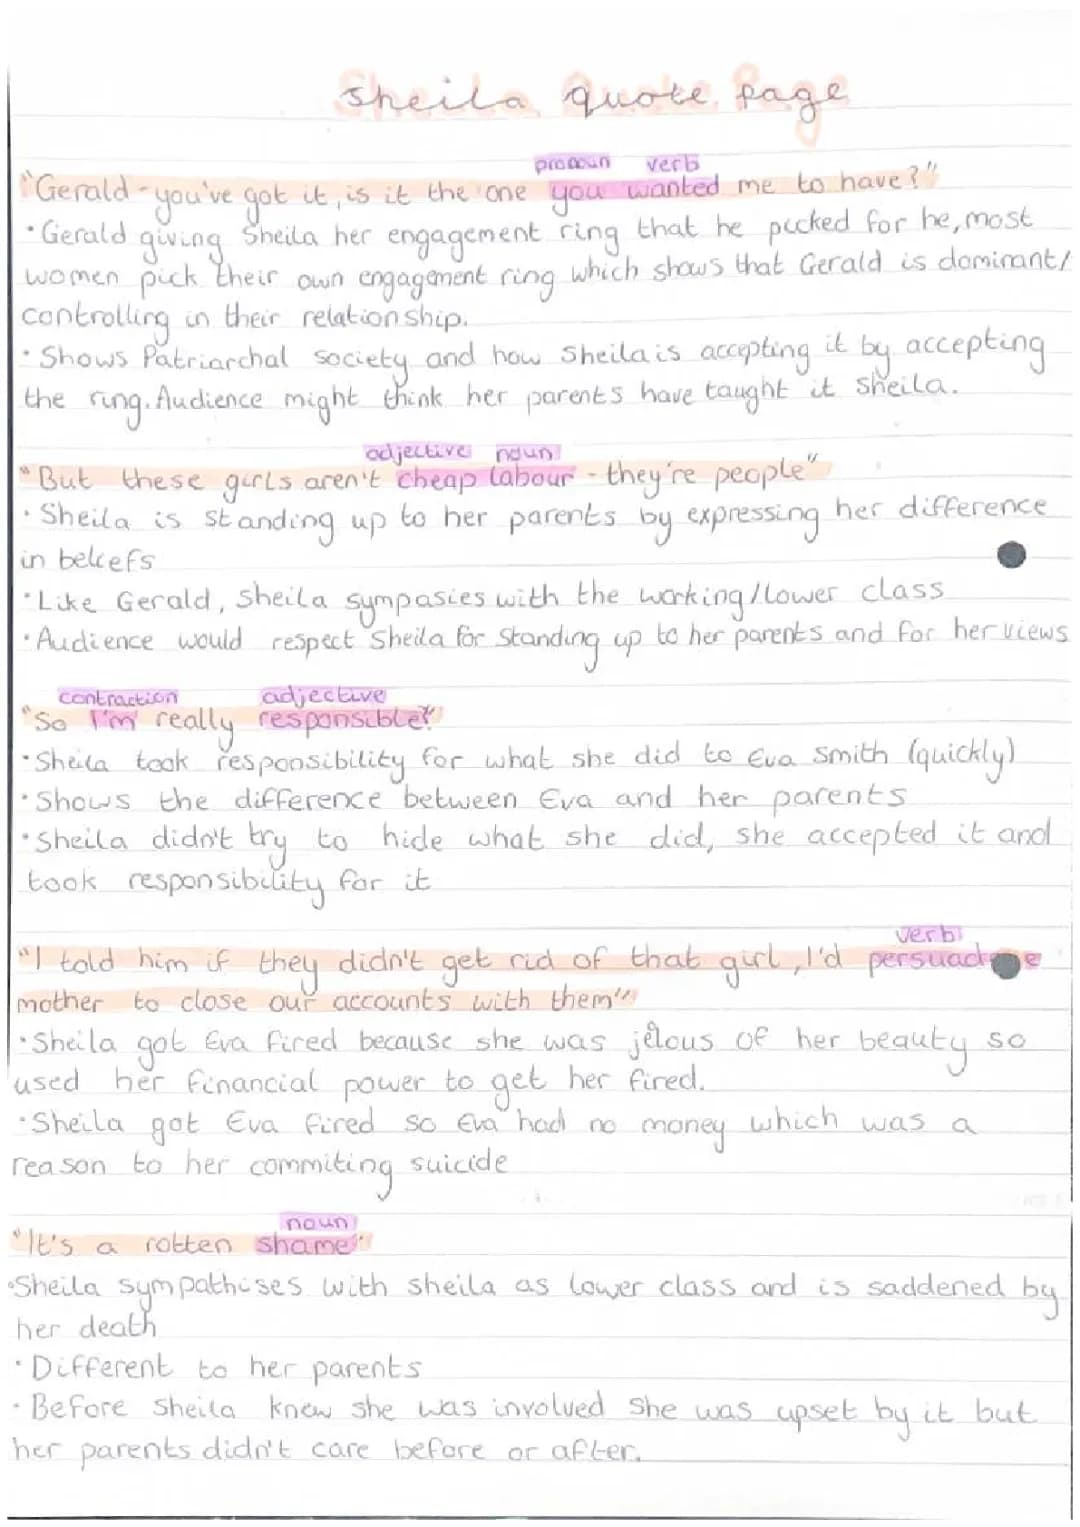 Sheila Quote Page
pronoun verb
"Gerald - you've got it, is it the one you wanted me to have?"
• Gerald giving Sheila her engagement ring that he picked for he, most
women pick their own engagement ring which shows that Gerald is dominant/
controlling in their relationship.
• Shows Patriarchal society and how Sheila is accepting it by accepting
the ring. Audience might think her parents have taught it Sheila.
adjective noun
"But these girls aren't cheap labour - they're people"
• Sheila is standing up to her parents by expressing her difference
in beliefs
• Like Gerald, Sheila sympasies with the working/lower class
• Audience would respect Sheila for standing up to her parents and for her views
contraction adjective
"So I'm really responsible?"
• Sheila took responsibility for what she did to Eva Smith (quickly)
• Shows the difference between Eva and her parents
• Sheila didn't try to hide what she did, she accepted it and
took responsibility for it
verb
"I told him if they didn't get rid of that girl, I'd persuade
mother to close our accounts with them"
• Sheila got Eva fired because she was jelous of her beauty so
used her financial power to get her fired.
• Sheila got Eva fired so Eva had no money which was a
reason to her commiting suicide
noun
"It's a rotten shame"
• Sheila sympathises with sheila as lower class and is saddened by
her death
• Different to her parents
• Before Sheila knew she was involved she was upset by it but
her parents didn't care before or after.